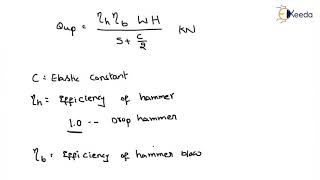 Ekeeda
Qup = ηh ηb WH / S + C/2 KN
C = Elastic Constant
ηh = Efficiency of hammer
1.0 -- Drop hammer
ηb = Efficiency of hammer blow